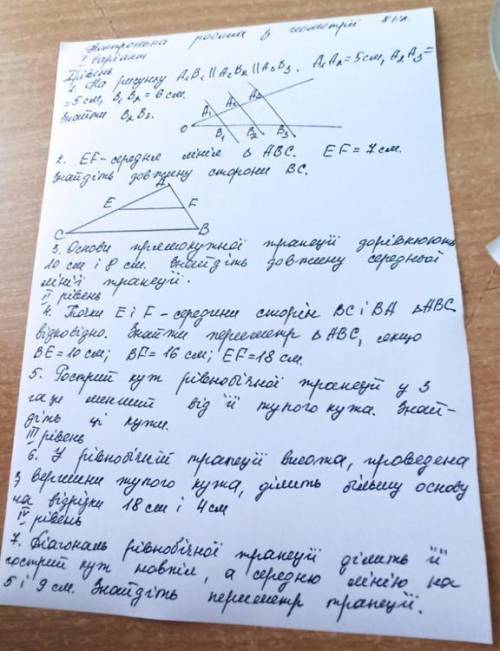 Контрольна робота з геометрії
I варіант
I рівень
1. На рисунку A₁B₁ || A₂B₂ || A₃B₃. A₁A₂ = 5см, A₂A₃ =
= 5см, B₁B₂ = 6см.
Знайти B₂B₃.
A₁ A₂ A₃
O B₁ B₂ B₃
2. EF - середня лінія Δ ABC. EF = 7см.
Знайдіть довжину сторони BC.
A
E F
C B
3. Основи прямокутної трапеції дорівнюють
10 см і 8 см. Знайдіть довжину середньої
лінії трапеції.
II рівень
4. Точки E і F - середини сторін BC і BA Δ ABC
відповідно. Знайти периметр Δ ABC, якщо
BE = 10 см; BF = 16 см; EF = 18 см.
5. Гострий кут рівнобічної трапеції у 3
рази менший від її тупого кута. Знай-
діть ці кути.
III рівень
6. У рівнобічній трапеції висота, проведена
з вершини тупого кута, ділить більшу основу
на відрізки 18 см і 4 см
IV рівень
7. Діагональ рівнобічної трапеції ділить її
гострий кут навпіл, а середню лінію на
5 і 9 см. Знайдіть периметр трапеції.